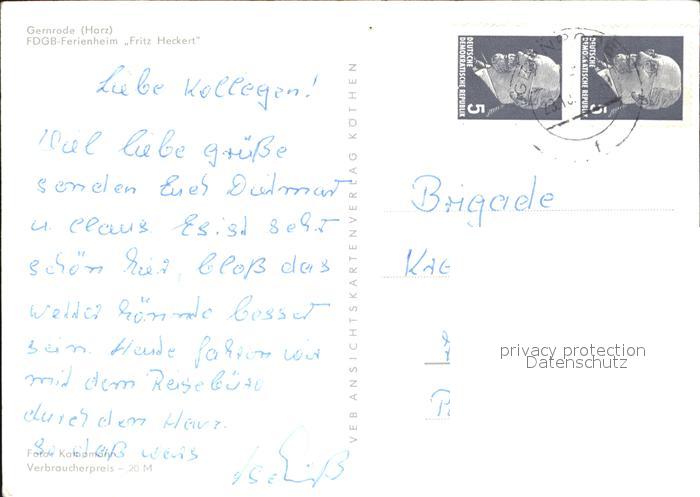 Gernrode (Harz)
FDGB-Ferienheim „Fritz Heckert"
Liebe Kollegen!
Viel liebe grüße
senden Euch Dietmar
u. Claus. Es ist sehr
schön hier, bloß das
wetter könnte besser
sein. Heute fahren wir
mit dem Reisebüro
durch den Harz.
Verbraucherpreis – ,20 M
VEB ANSICHTSKARTENVERLAG KÖTHEN
DEUTSCHE
DEMOKRATISCHE REPUBLIK
5
DEUTSCHE
DEMOKRATISCHE REPUBLIK
5
Brigade
privacy protection
Datenschutz